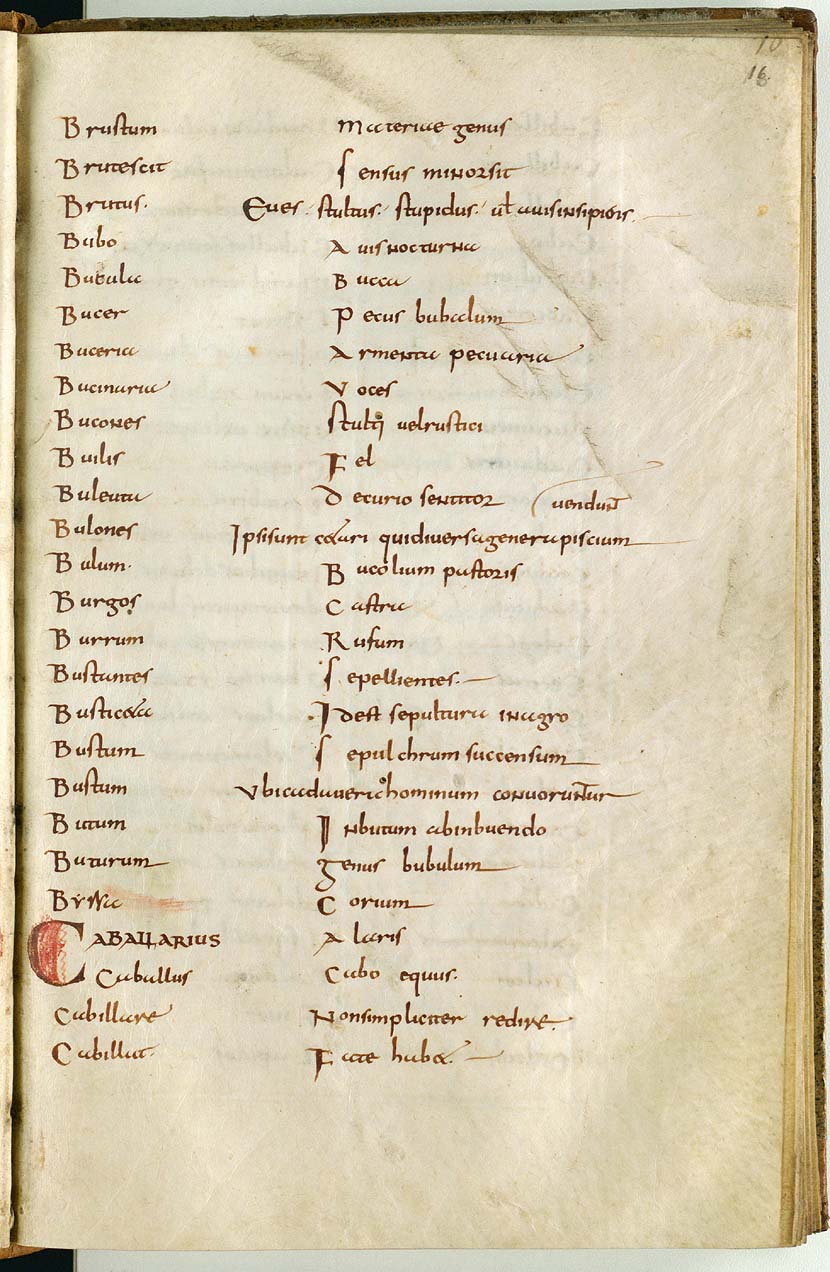 10
16
Brustum materiae genus
Brutescit Sensus minor sit
Brutus. Eues. stultus. stupidus. ul avis insipiens.
Bubo Avis nocturna
Bucula Bucca
Bucer Pecus bubalum
Buceria Armenta pecuaria
Bucinaria Voces
Bucones Stulti vel rustici
Builis Fel
Buleuta Decurio sentitor
vendunt
Bulones Ipsi sunt cetari qui diversa genera piscium
Bulum. Bucolium pastoris
Burgos Castra
Burrum Rufum
Bustantes Sepellientes.
Busticeta Id est sepultura in agro
Bustum Sepulchrum succensum
Bustum Ubi cadavera hominum conboruntur
Butum Inbutum ab inbuendo
Buturum genus bubulum
Byrsa Corium
CABALLARIUS Alaris
Caballus Cabo equus.
Cabillare Non simpliciter redire.
Cabillat. Fate habet.